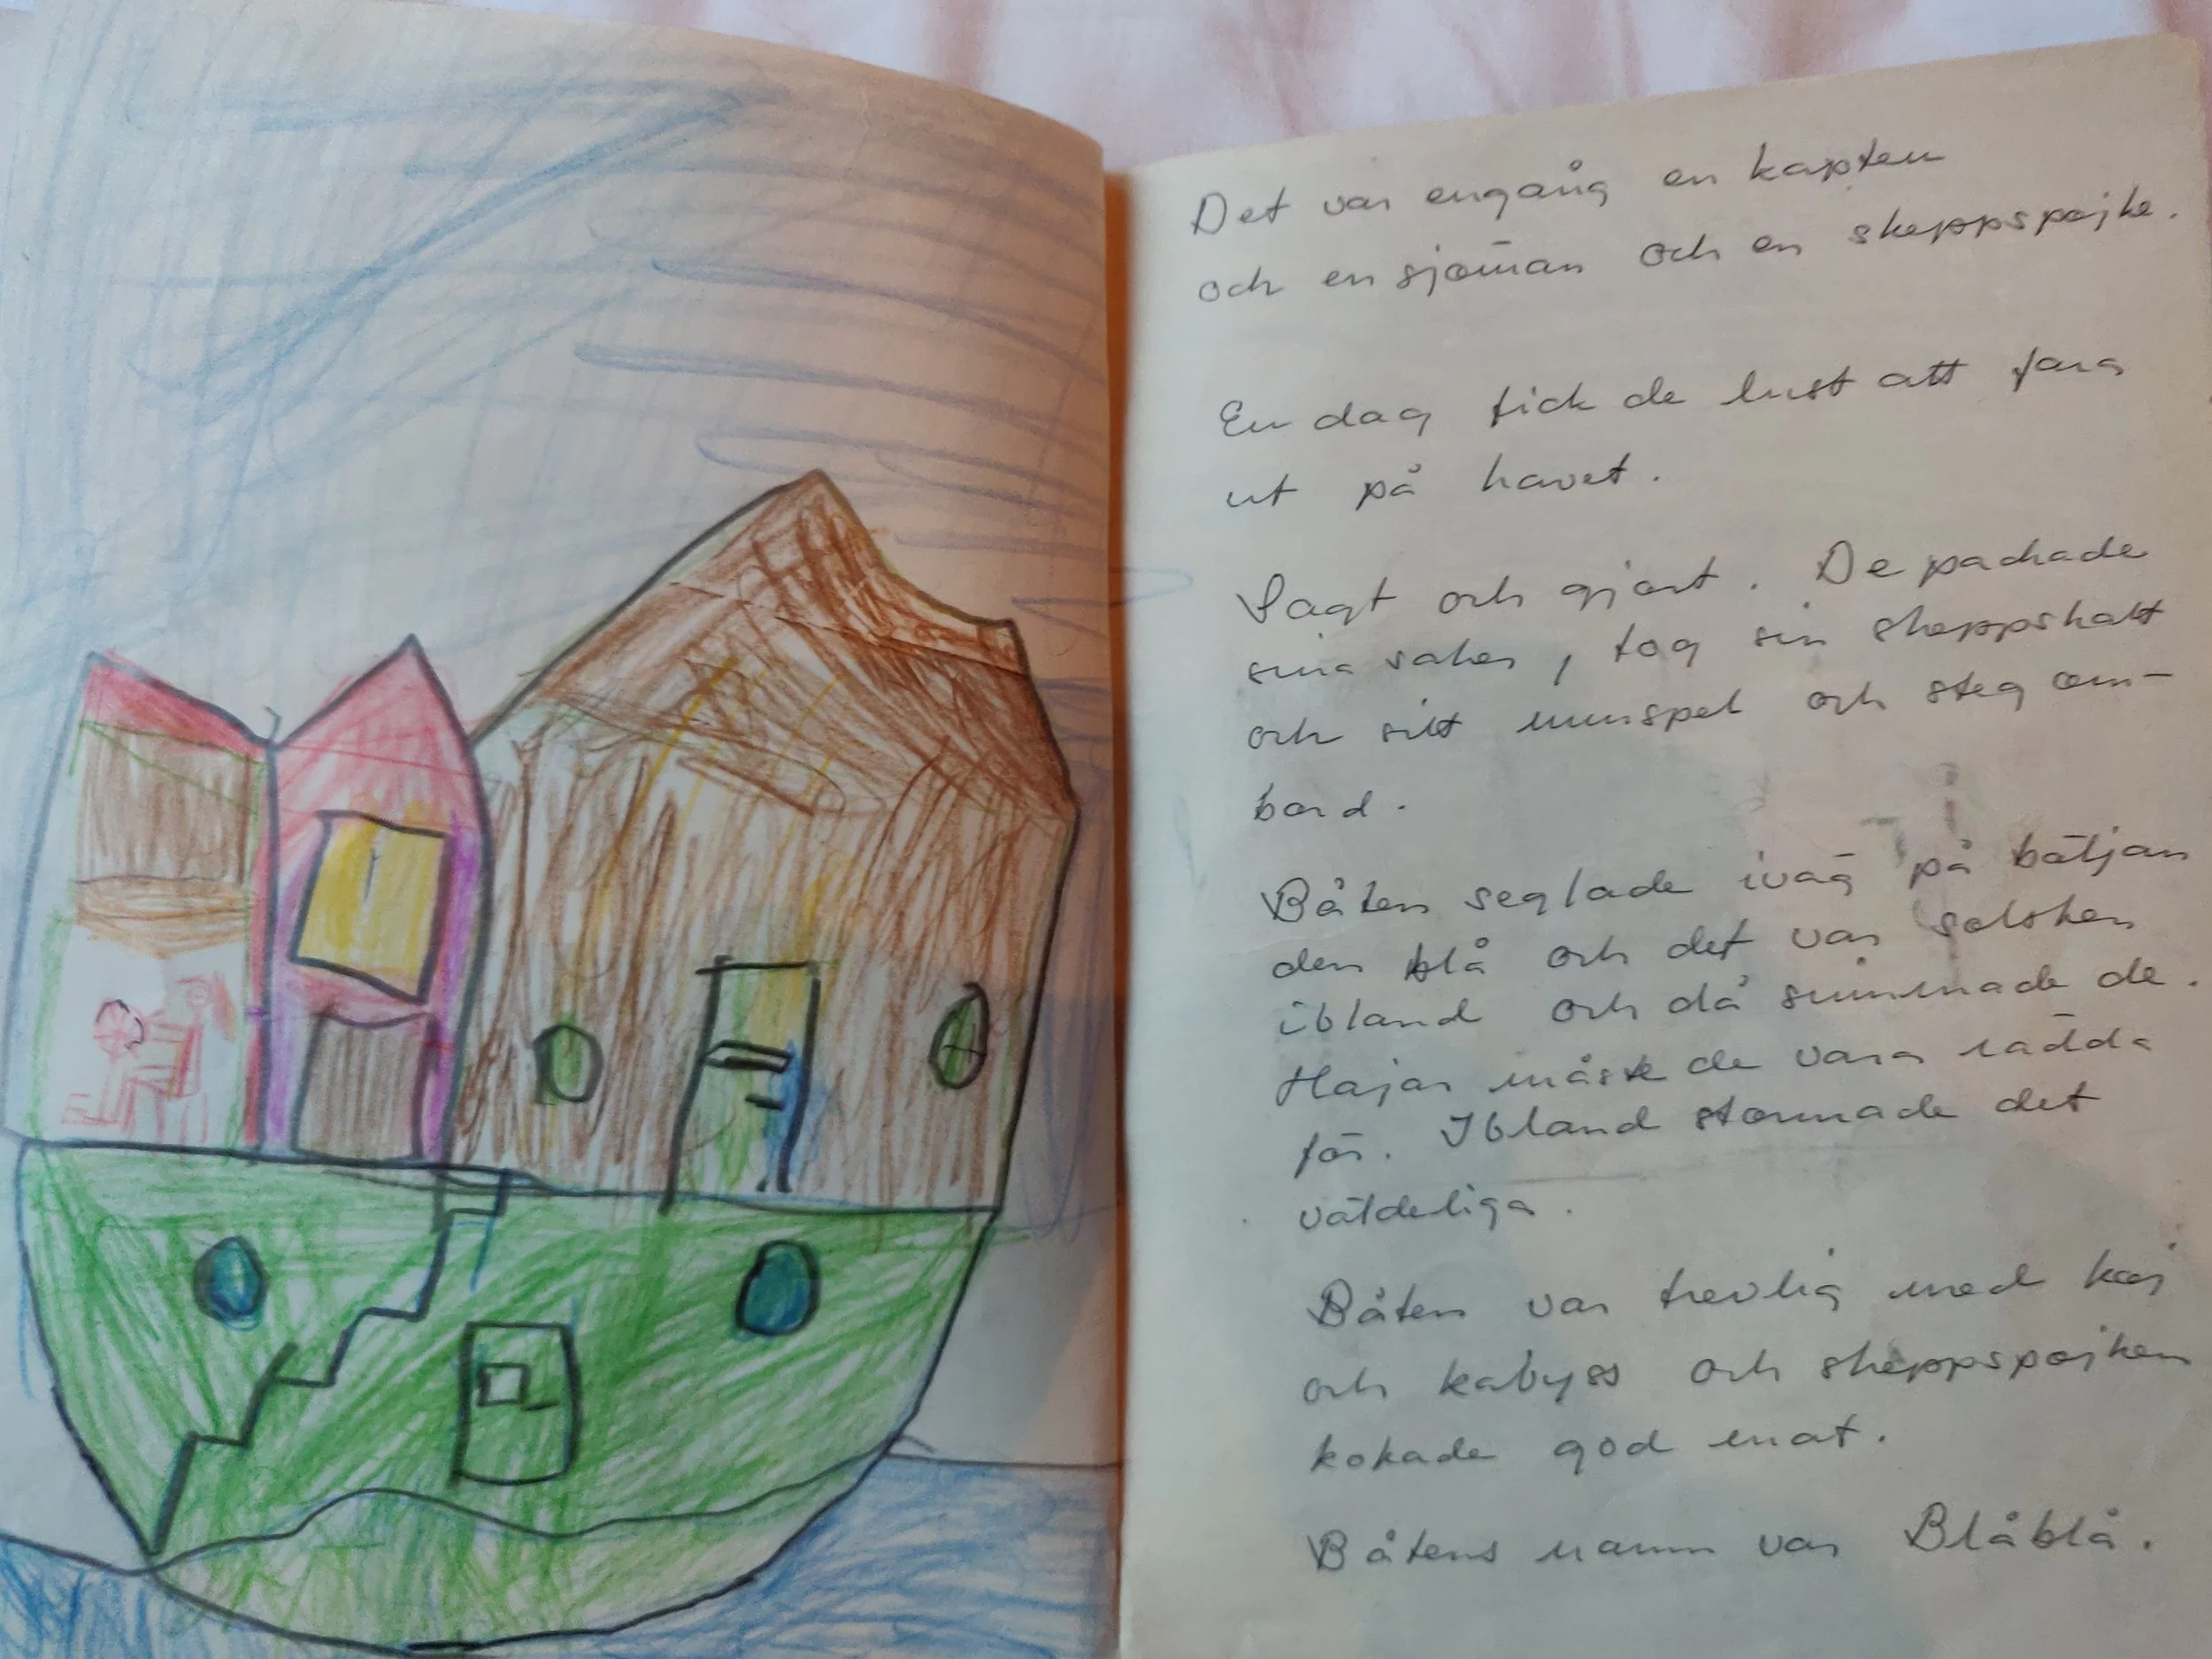 Det var engång en kapten
och en sjöman och en skeppspojke.
En dag fick de lust att fara
ut på havet.
Sagt och gjort. De packade
sina saker, tog sin skeppskatt
och sitt munspel och steg om-
bord.
Båten seglade iväg på böljan
den blå och det var solsken
ibland och då simmade de.
Hajar måste de vara rädda
för. Ibland stormade det
väldeliga.
Båten var trevlig med koj
och kabyss och skeppspojken
kokade god mat.
Båtens namn var Blåblå.